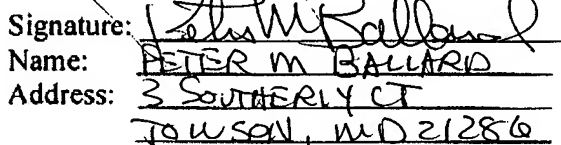 Signature: Peter M Ballard
Name: PETER M BALLARD
Address: 3 SOUTHERLY CT
TOWSON, MD 21286